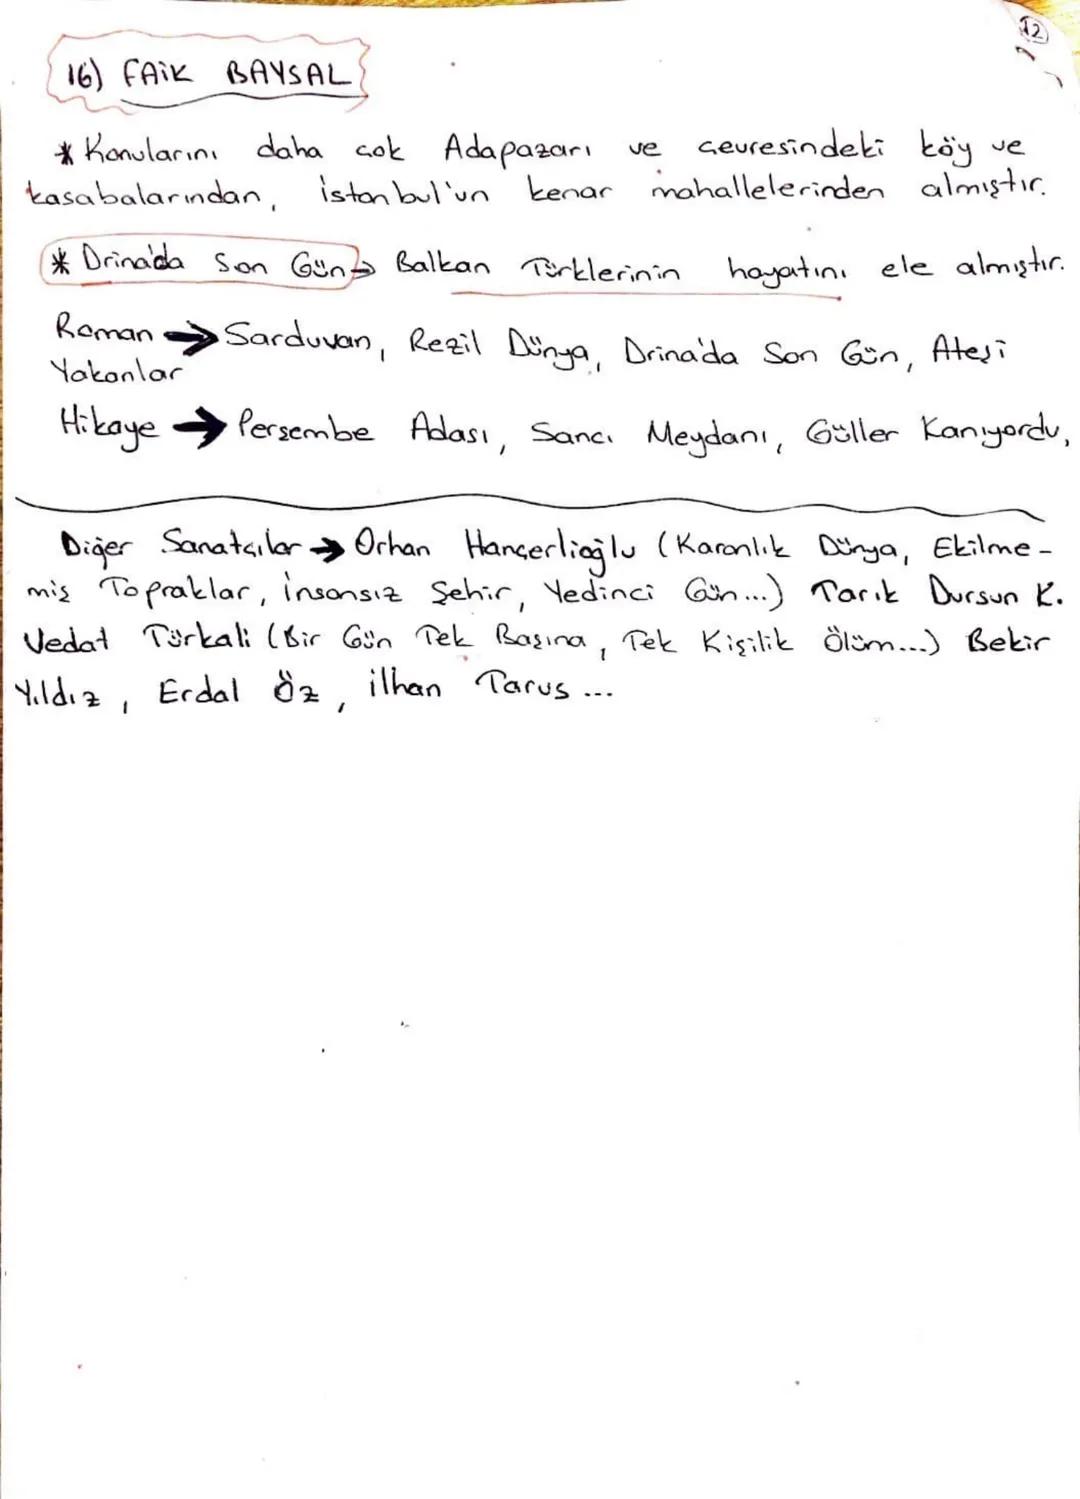 12
16) FAİK BAYSAL
* Konularını daha çok Adapazarı ve çevresindeki köy ve
kasabalarından, İstanbul'un kenar mahallelerinden almıştır.
* Drina'da Son Gün → Balkan Türklerinin hayatını ele almıştır.
Roman → Sarduvan, Rezil Dünya, Drina'da Son Gün, Ateşi
Yakanlar
Hikaye → Perşembe Adası, Sancı Meydanı, Güller Kanıyordu,
Diğer Sanatçılar → Orhan Hançerlioğlu (Karanlık Dünya, Ekilme-
miş Topraklar, İnsansız Şehir, Yedinci Gün...) Tarık Dursun K.
Vedat Türkali (Bir Gün Tek Başına, Tek Kişilik Ölüm...) Bekir
Yıldız, Erdal Öz, İlhan Tarus...